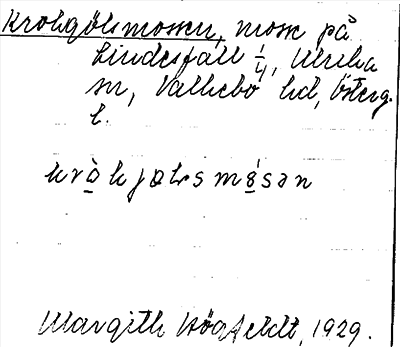 Krokgölsmossen, mosse på
Lindesfall 1/4, Ulrika
sn, Valkebo hd, Österg.
l.
krò̱kjøls mó̱sən
Margith Högfeldt, 1929.